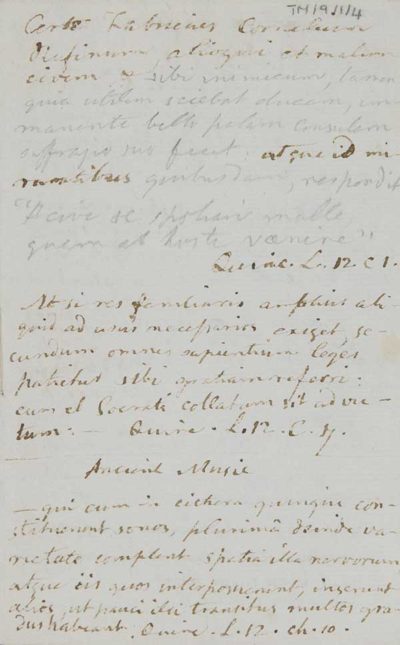 TM/9/1/4
Certe Fabricius Cornelium
alioqui et malum
civem & sibi inimicum, tamen
quia utilem sciebat ducem, im-
minente bello palam consulem
suffragio suo fecit atque id mi-
rantibus quibusdam, respondit
"A cive se spoliari malle
quam ab hoste vænire"
Quinc. L. 12 c 1.
At si res familiaris amplius ali-
quid ad usus necessarios exiget, se-
cundum omnes sapientium leges
patietur sibi gratiam referri:
cum et Socrati collatum sit ad vic-
tum: — Quinc. L. 12. C. 7.
Ancient Music
— qui cum in cithara quinque con-
stituerunt sonos, plurimâ deinde va-
rietate complent spatia illa nervorum
atque iis quos interposuerunt, inserunt
alios, ut pauci illi transitus multos gra-
dus habeant. Quinc. L. 12. ch. 10.